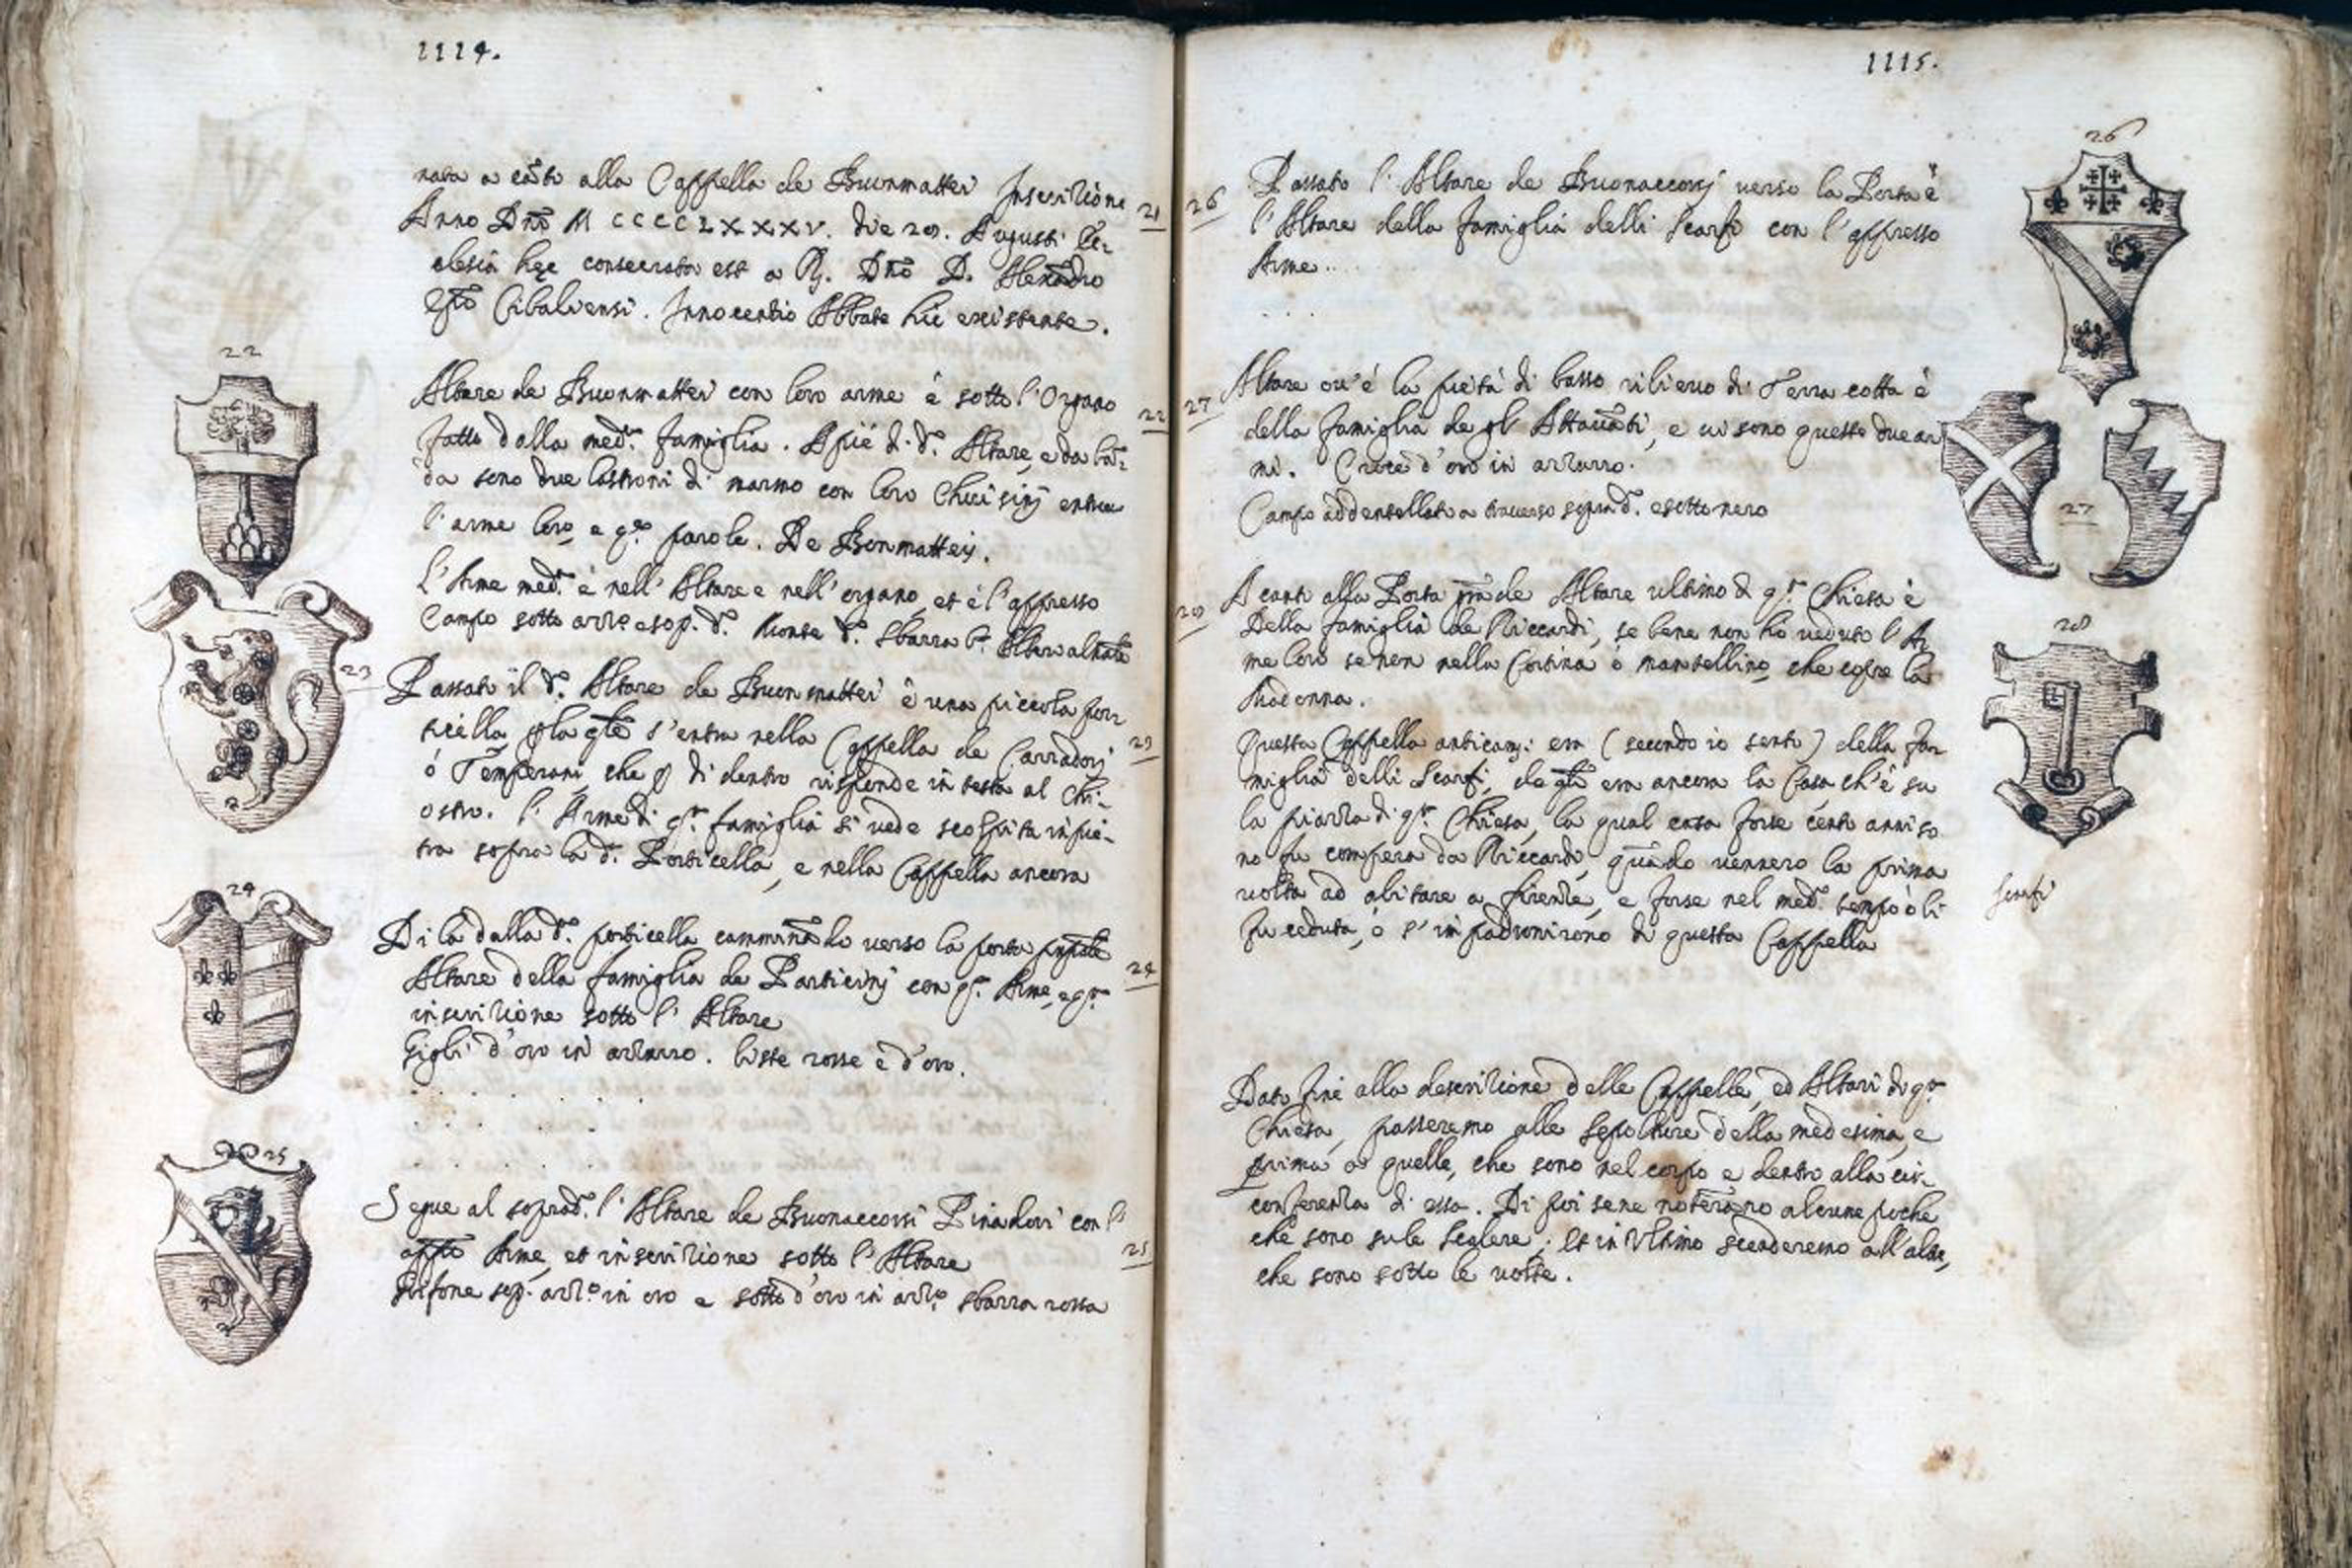 1114.
nata a cāto alla Cappella de Buonmattei Inscrizione
Anno Dn̄o M CCCCLXXXV. die 28. Augusti Ec- 21
clesia hęc consecrata est a R. Dn̄o D. Alexādro
Ep̄o Cibaliensi. Innocentio Abbate hic existente.
22
Altare de Buonmattei con loro arme è sotto l'Organo
fatto dalla med.ª famiglia. A piè di d.º Altare, e da bā- 22
da sono due lastroni di marmo con loro Chiusinj entrovi
l'arme loro, e q.e parole. De Bonmatteis.
L'Arme med.ª è nell'Altare e nell'organo, et è l'appresso
Campo sotto azz.º e sop.ª d.º Monte d.º Sbarra b.ª Albero al nāle
23 Passato il d.º Altare de Buonmattei è una piccola por-
ticella p la qle s'entra nella Cappella de Carradorj 23
ò Temperani, che p di dentro risponde in testa al Chi-
ostro. l'Arme di q.ª famiglia si vede scolpita in pie-
tra sopra la d.ª Porticella, e nella Cappella ancora
24
Di là dalla d.ª porticella camminādo verso la porta pnple
Altare della famiglia de Particinj con q.ª Arme, e q.ª 24
inscrizione sotto l'Altare
Gigli d'oro in azzurro. liste rosse e d'oro.
25
Segue al soprad.º l'Altare de Buonaccorsi Pinadori con l'
app̄to Arme, et inscrizione sotto l'Altare 25
Grifone sop.ª azz.º in oro e sotto d'oro in azz.º sbarra rossa
1115.
26
26 Passato l'Altare de Buonaccorsj verso la Porta è
l'Altare della famiglia delli Scarfi con l'appresso
Arme..
27 Altare ov'è la pietà di basso rilievo di Terra cotta è
della famiglia de gl'Attavāti, e vi sono queste due ar
mi. Croce d'oro in azzurro.
27
Campo addentellato a traverso sopra d.º e sotto nero
28
28 A canto alla Porta grāde Altare ultimo di q.ª Chiesa è
Della famiglia de Riccardi, se bene non ho veduto l'Ar
me loro se non nella Cortina ò mantellino, che copre la
Madonna.
Questa Cappella anticam.e era (secondo io sento) della fa-
miglia delli Scarfi, de qli era ancora la Casa ch'è su
la piazza di q.ª Chiesa, la qual casa forse cento anni so
no fu compera da Riccardi, quādo vennero la prima
volta ad abitare a firenze, e forse nel med.º tempo ò li
Scarfi
fu ceduta, ò s'impadronirono di questa Cappella
Dato fine alla descrizione delle Cappelle, ed Altari di q.ª
Chiesa, passeremo alle sepolture della medesima, e
prima a quelle, che sono nel corpo e dentro alla cir-
conferenza di essa. Di poi se ne noterāno alcune poche
che sono su le Scalere; et in Vltimo scenderemo all'altre,
che sono sotto le volte.